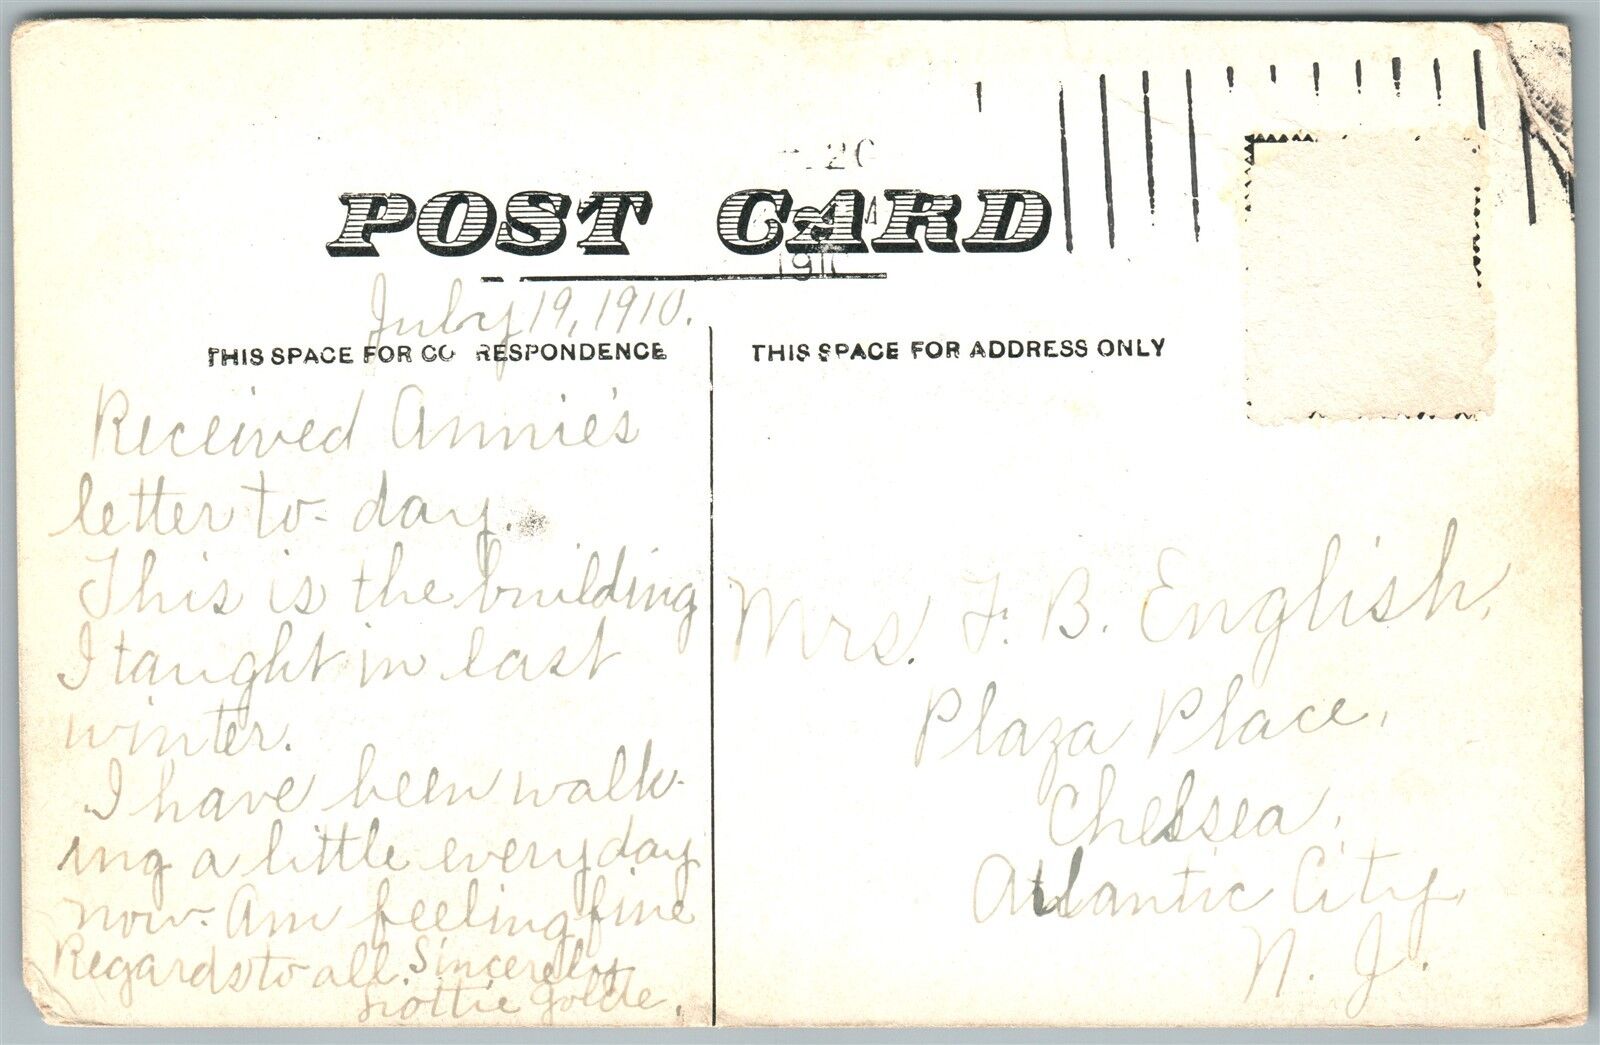 20
POST CARD
1910
July 19, 1910.
THIS SPACE FOR CO RESPONDENCE
THIS SPACE FOR ADDRESS ONLY
Received Annie's
letter to-day.
This is the building
I taught in last
winter.
I have been walk-
ing a little every day
now. Am feeling fine
Regards to all. Sincerely
Lottie
Mrs. F. B. English,
Plaza Place,
Chelsea,
Atlantic City,
N. J.